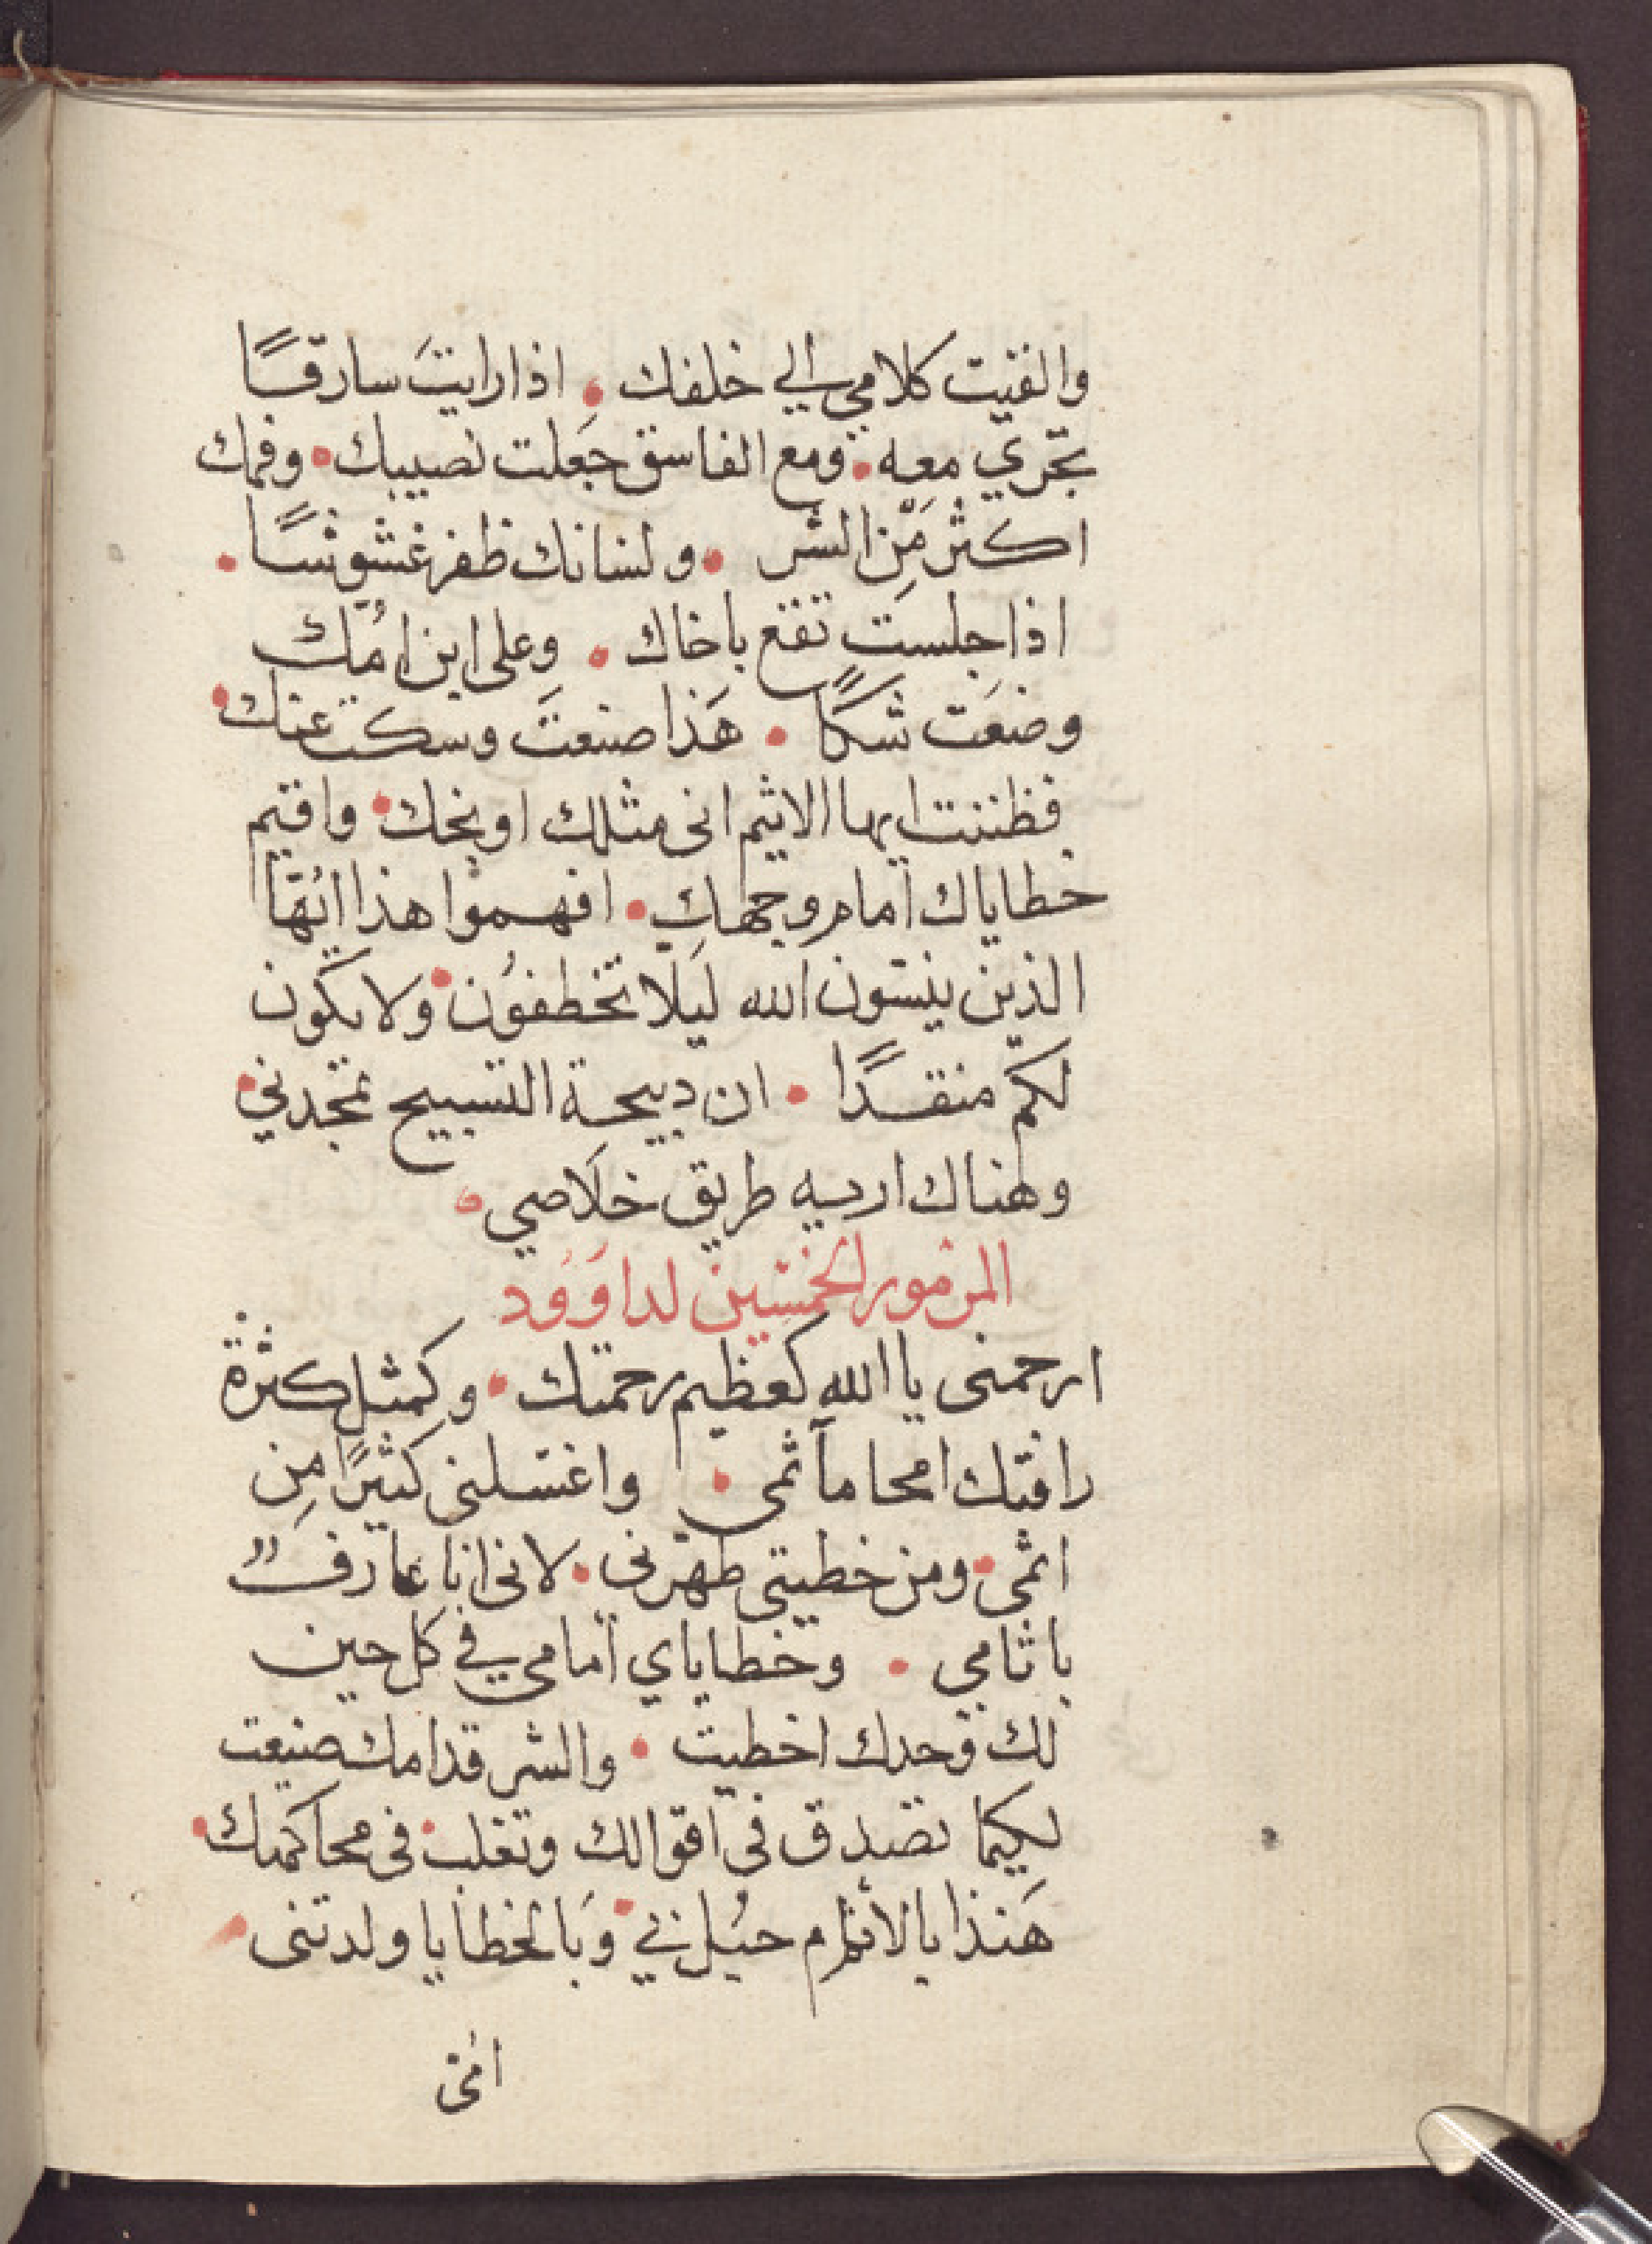 والقيت كلامي الي خلفك • اذا رايتَ سارقًا
تجّري معه • ومع الفاسق جَعلت نصيبك • وفمك
اكثر مِّن الشر • ولسانك ظفر غشوشًا •
اذا جلست تقع باخاك • وعلى ابن امُك
وضعَت شكًا • هَذا صنعتَ وسكت عنك •
فظننت ايها الاثيم انى مثلك اوبخك • واقيم
خطاياك امام وجهك • افهموا هذا ايُّها
الذين ينسون الله ليَلا تخطفوُن • ولا يكون
لكم منقدًا • ان دبيحة التسبيح تمجدني •
وهناك اريه طريق خلَاصي •
المزمور الخمسين لداوَوُد
ارحمنى يا الله كعظيم رحمتك • وكمثل كثرة
رافتك امحا مآثمى • واغسلنى كثيرًا مِن
اثمي • ومن خطيتى طهّرنى • لانى انا عارفٌ
باثامي • وخطاياي امامي في كل حين
لك وحدك اخطيت • والشر قدامك صنعت
لكيما تصدق في اقوالك وتغلب • فى محاكمتك •
هَنذا بالأثام حبُل بي • وَبالخطايا ولدتنى •
امى